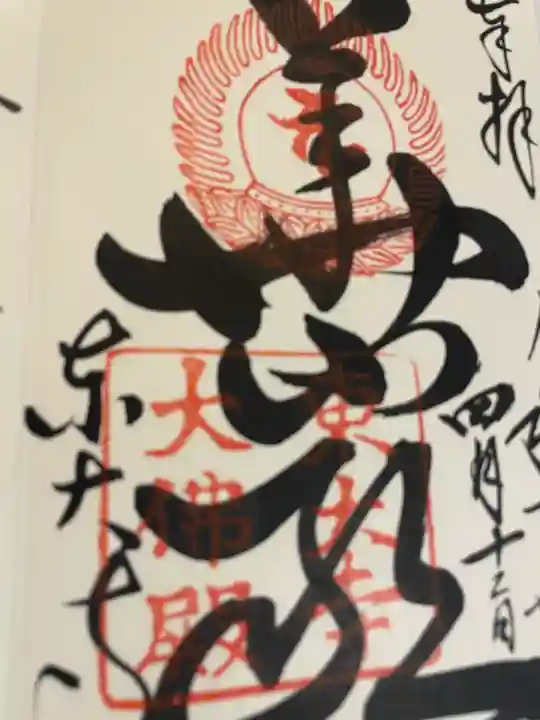 奉拝
四月十二日
華厳
東大寺
大佛殿
東大寺